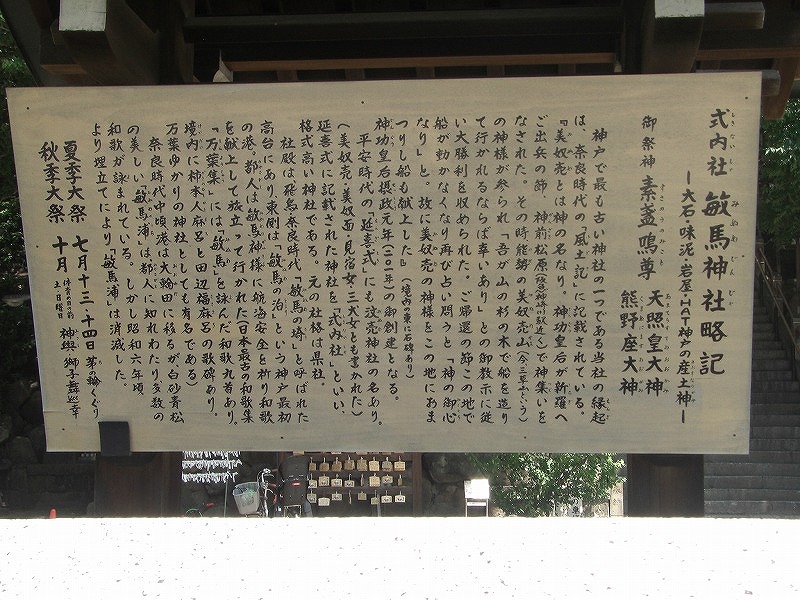 式内社 敏馬神社略記
―大石・味泥・岩屋・HAT神戸の産土神―
御祭神 素盞嗚尊 天照皇大神 熊野座大神
神戸で最も古い神社の一つである当社の縁起
は、奈良時代の『風土記』に記載されている。
『美奴売とは神の名なり。神功皇后が新羅へ
ご出兵の節、神前松原(阪急神崎川駅近く)で神集いを
なされた。その時能勢の美奴売山(今三草山という)
の神様が参られ「吾が山の杉の木で船を造り
て行かれるならば幸いあり」との御教示に従
い大勝利を収められた。ご帰還の節この地で
船が動かなくなり再び占い問うと「神の御心
なり」と。故に美奴売の神様をこの地におま
つりし船も献上した』(境内の裏に石碑あり)
神功皇后摂政元年(二〇一年)の御創建となる。
平安時代の『延喜式』にも汶売神社の名あり。
(美奴売・美奴面・見宿女・三犬女とも書かれた)
延喜式に記載された神社を「式内社」といい、
格式高い神社である。元の社格は県社。
社殿は飛鳥・奈良時代、「敏馬の埼」と呼ばれた
高台にあり、東側は「敏馬の泊」という神戸最初
の港。都人は敏馬神様に航海安全を祈り和歌
を献上して旅立って行かれた(日本最古の和歌集
『万葉集』には「敏馬」を詠んだ和歌九首あり。
境内に柿本人麻呂と田辺福麻呂の歌碑あり)
万葉ゆかりの神社としても有名である。
奈良時代中頃港は大輪田に移るが、白砂青松
の美しい「敏馬浦」は都人に知れわたり多数の
和歌が詠まれている。しかし昭和六年頃
より埋立てにより、「敏馬浦」は消滅した。
夏季大祭 七月十三・十四日 茅の輪くぐり
秋季大祭 十月 体育の日の前 土・日曜日 神輿・獅子舞巡幸